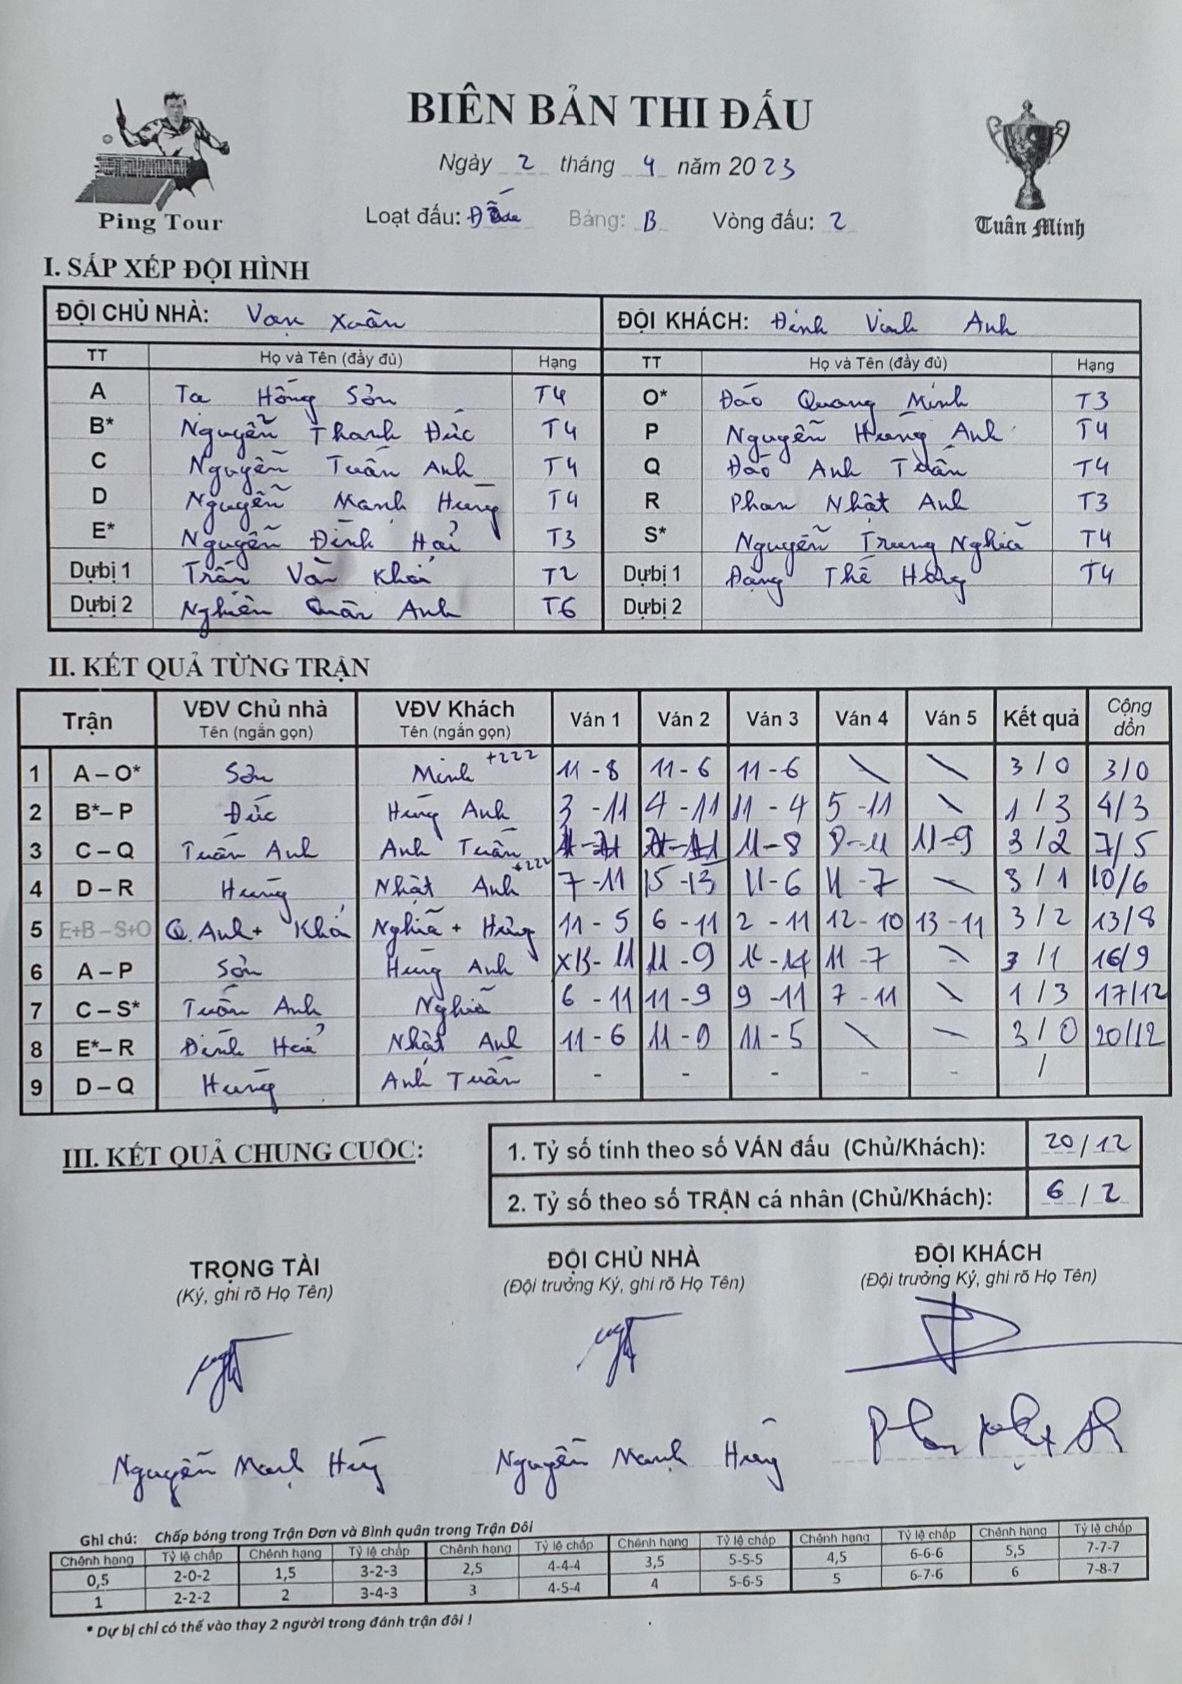 BIÊN BẢN THI ĐẤU
Ping Tour
Tuân Minh
Ngày 2 tháng 4 năm 2023
Loạt đấu: Bảng: B Vòng đấu: 2
I. SẮP XẾP ĐỘI HÌNH
ĐỘI CHỦ NHÀ: Vạn Xuân ĐỘI KHÁCH: Đinh Vinh Anh
TT Họ và Tên (đầy đủ) Hạng TT Họ và Tên (đầy đủ) Hạng
A Tạ Hồng Sơn T4 O* Đào Quang Minh T3
B* Nguyễn Thanh Đức T4 P Nguyễn Hùng Anh T4
C Nguyễn Tuấn Anh T4 Q Đào Anh Tuấn T4
D Nguyễn Mạnh Hùng T4 R Phan Nhật Anh T3
E* Nguyễn Đình Hải T3 S* Nguyễn Trung Nghĩa T4
Dự bị 1 Trần Văn Khải T2 Dự bị 1 Đặng Thế Hùng T4
Dự bị 2 Quân Anh T6 Dự bị 2
II. KẾT QUẢ TỪNG TRẬN
Trận VĐV Chủ nhà Tên (ngắn gọn) VĐV Khách Tên (ngắn gọn) Ván 1 Ván 2 Ván 3 Ván 4 Ván 5 Kết quả Cộng dồn
1 A – O* Sơn Minh +222 11 - 8 11 - 6 11 - 6 \ \ 3 / 0 3/0
2 B* – P Đức Hùng Anh 3 - 11 4 - 11 11 - 4 5 - 11 \ 1 / 3 4/3
3 C – Q Tuấn Anh Anh Tuấn 11 - 8 8 - 11 11 - 9 3 / 2 7/5
4 D – R Hùng Nhật Anh +222 7 - 11 15 - 13 11 - 6 11 - 7 \ 3 / 1 10/6
5 E+B – S+O Q. Anh + Khải Nghĩa + Hùng 11 - 5 6 - 11 2 - 11 12 - 10 13 - 11 3 / 2 13/8
6 A – P Sơn Hùng Anh - 11 11 - 9 16 - 14 11 - 7 \ 3 / 1 16/9
7 C – S* Tuấn Anh Nghĩa 6 - 11 11 - 9 9 - 11 7 - 11 \ 1 / 3 17/12
8 E* – R Đình Hải Nhật Anh 11 - 6 11 - 9 11 - 5 \ \ 3 / 0 20/12
9 D – Q Hùng Anh Tuấn - - - - - /
III. KẾT QUẢ CHUNG CUỘC:
1. Tỷ số tính theo số VÁN đấu (Chủ/Khách): 20/12
2. Tỷ số theo số TRẬN cá nhân (Chủ/Khách): 6/2
TRỌNG TÀI ĐỘI CHỦ NHÀ ĐỘI KHÁCH
(Ký, ghi rõ Họ Tên) (Đội trưởng Ký, ghi rõ Họ Tên) (Đội trưởng Ký, ghi rõ Họ Tên)
Nguyễn Mạnh Hùng Nguyễn Mạnh Hùng Phan Nhật Anh
Ghi chú: Chấp bóng trong Trận Đơn và Bình quân trong Trận Đôi
Chênh hạng Tỷ lệ chấp Chênh hạng Tỷ lệ chấp Chênh hạng Tỷ lệ chấp Chênh hạng Tỷ lệ chấp Chênh hạng Tỷ lệ chấp Chênh hạng Tỷ lệ chấp
0,5 2-0-2 1,5 3-2-3 2,5 4-4-4 3,5 5-5-5 4,5 6-6-6 5,5 7-7-7
1 2-2-2 2 3-4-3 3 4-5-4 4 5-6-5 5 6-7-6 6 7-8-7
* Dự bị chỉ có thể vào thay 2 người trong đánh trận đôi !